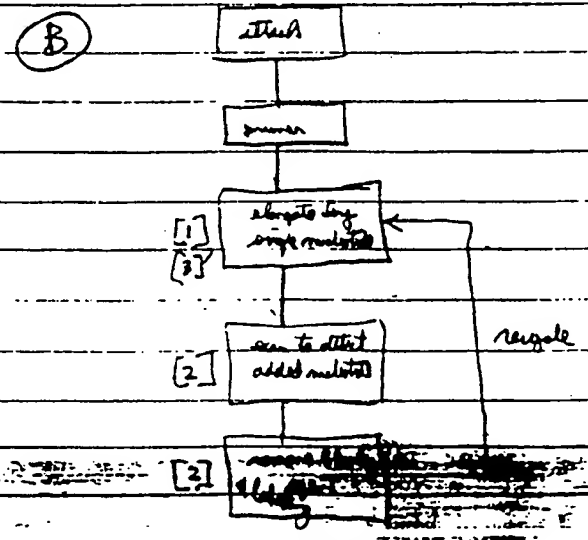 B
attach
primer
elongate by
[1]
single nucleotide
[3]
scan to detect
[2] added nucleotide
recycle
[2] remove